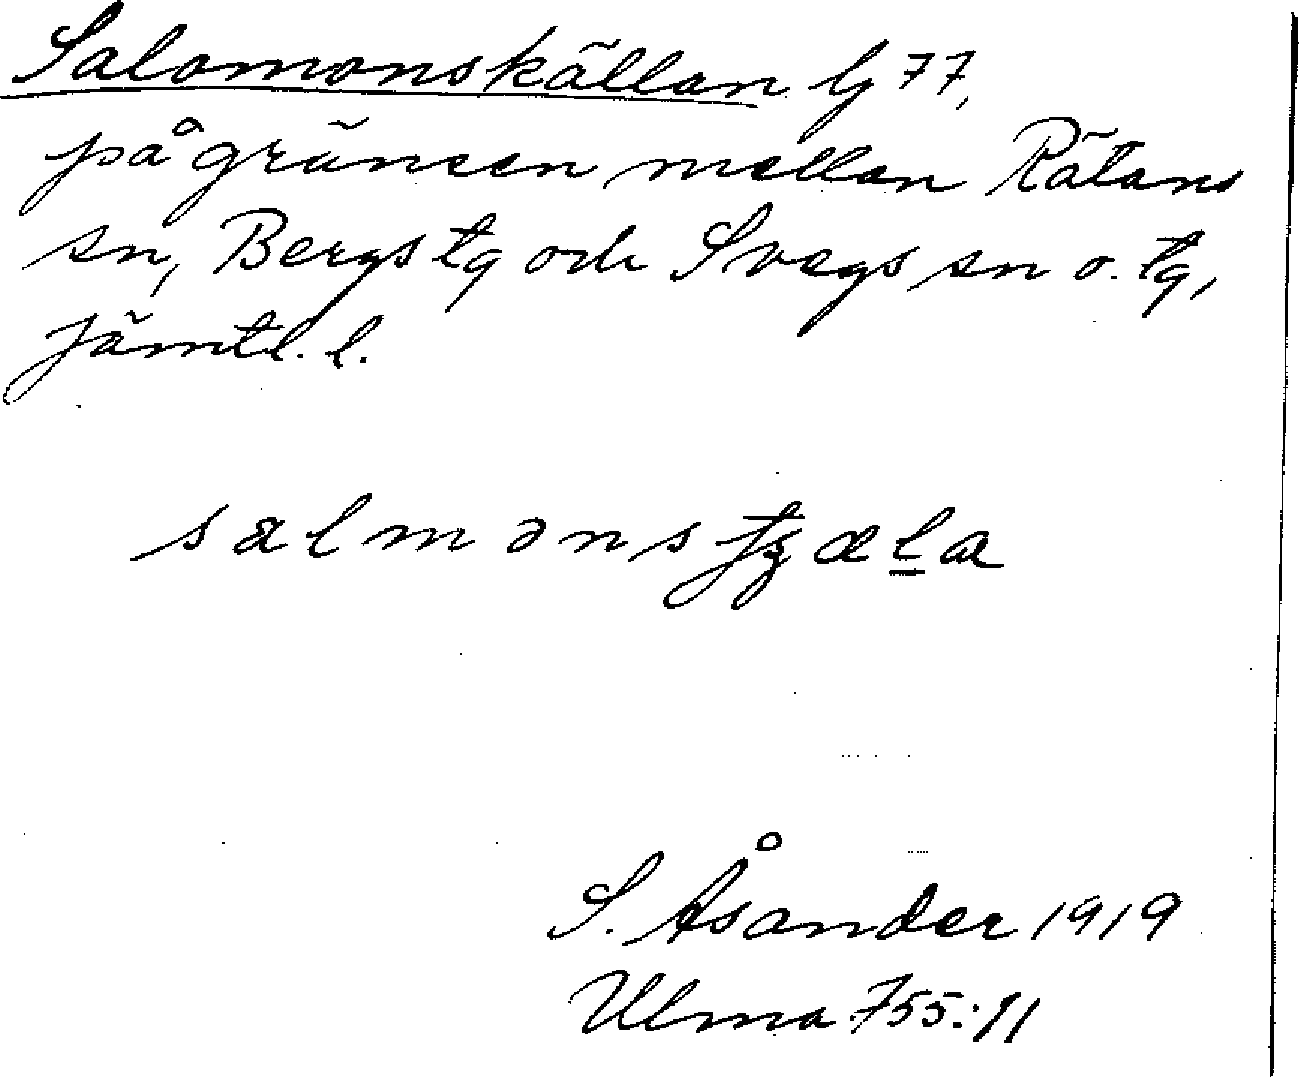 Salomonskällan lj 77,
på gränsen mellan Rätans
sn, Bergs tg och Svegs sn o. tg,
Jämtl. l.
salmənstʒæl̲a
S. Åsander 1919
Ulma 755:11